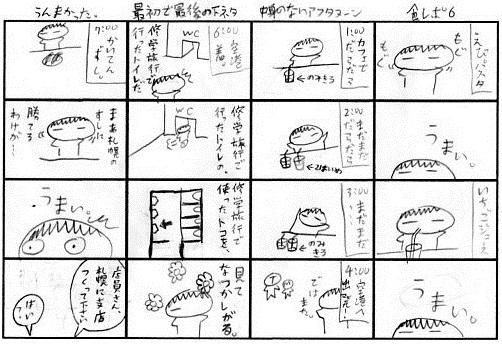 食レポ6
えびパスタ
もぐ
もぐ
うまい。
いちごジュース
うまい。
中身のないアフタヌーン
1:00
カフェで
だらだら
←のみきる
2:00
まだまだ
だらだら
←2はいめ
3:00
まだまだ
←のみきる
4:00
空港へ
出発!
ではまた。
最初で最後の下ネタ
6:00
空港着
WC
修学旅行で
行ったトイレだ
WC
修学旅行で
行ったトイレの、
修学旅行で
使ったトコを、
見て
なつかしがる。
うんまかった。
7:00
かいてん
ずし。
まあ札幌の
すしに
勝てる
わけが…
うまい。
店員さん、
札幌に支店
つくって下さい
はい?